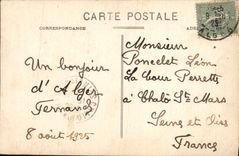 CARTE POSTALE
CORRESPONDANCE
Un bonjour
d'Alger
Fernand
8 août 1925
Monsieur
Poncelet Léon
La Cour Perrette
à Chalo St Mars
Seine et Oise
France